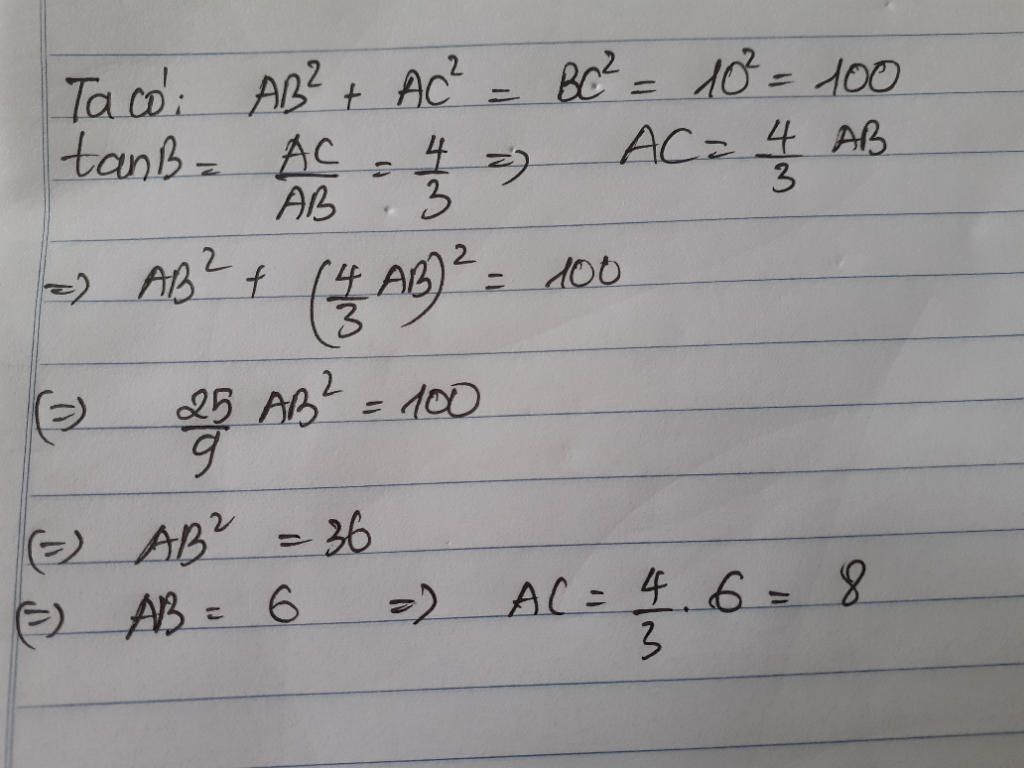 Ta có: AB² + AC² = BC² = 10² = 100
tanB = AC/AB = 4/3 => AC = 4/3 AB
=> AB² + (4/3 AB)² = 100
(=) 25/9 AB² = 100
(=) AB² = 36
(=) AB = 6 => AC = 4/3 . 6 = 8